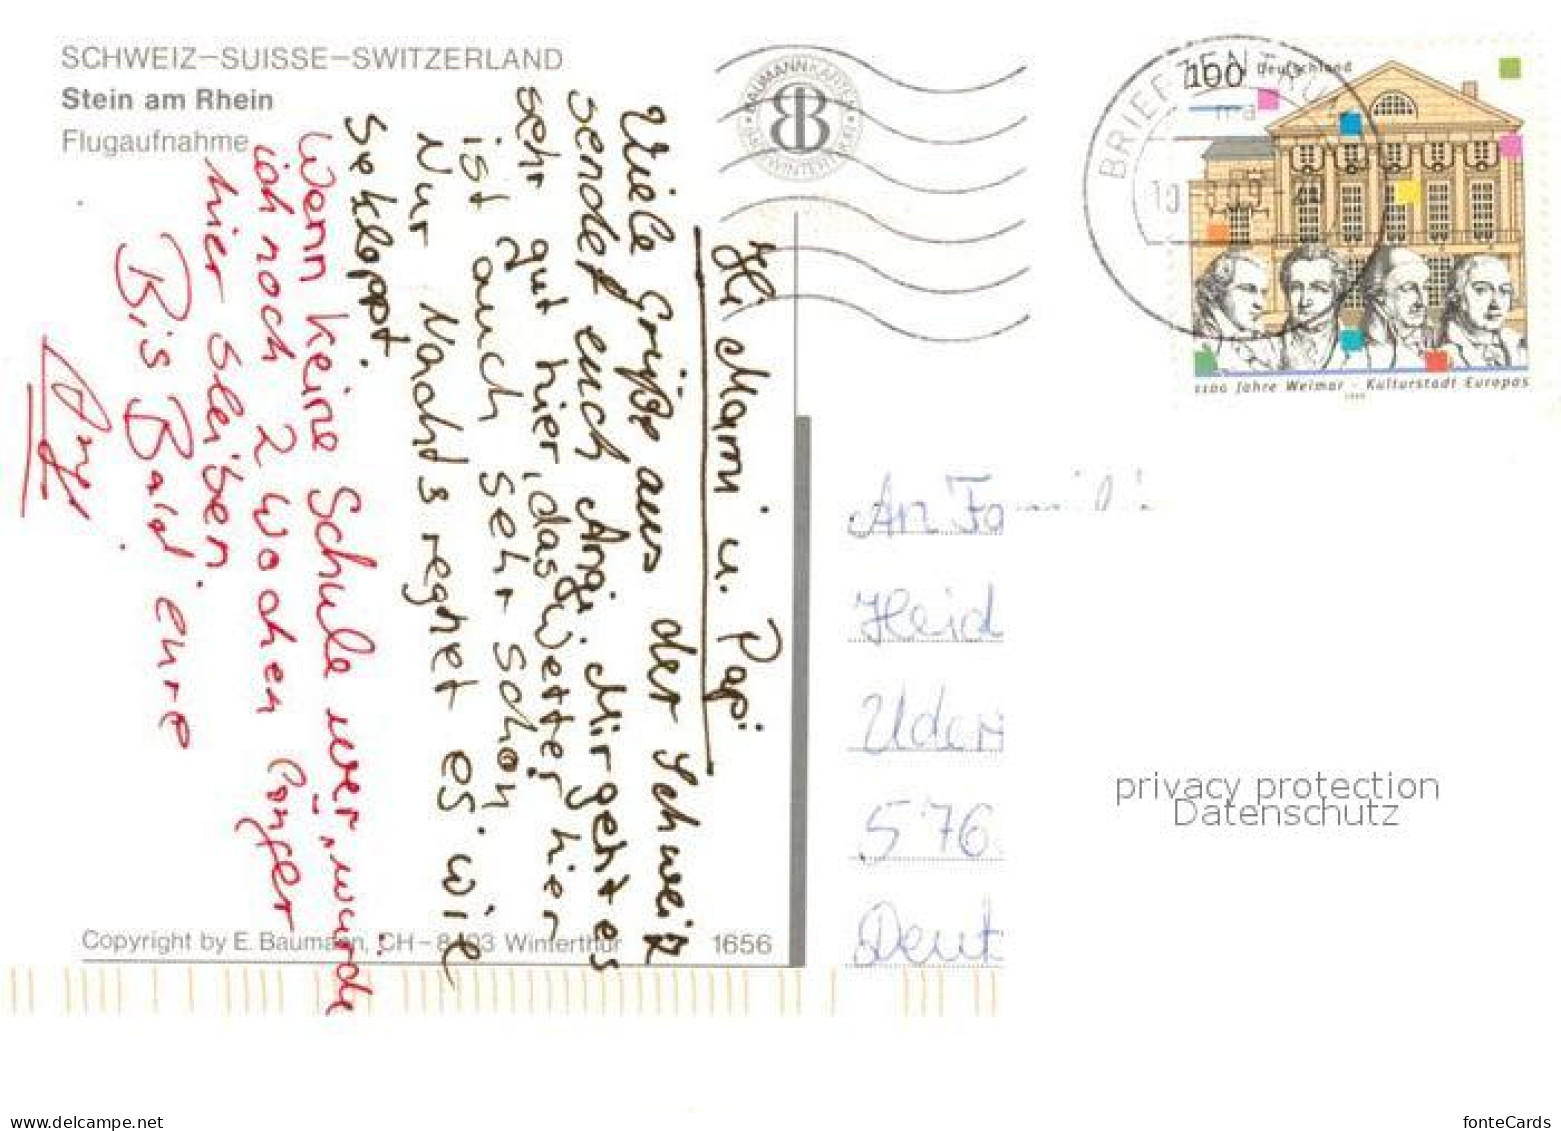 SCHWEIZ–SUISSE–SWITZERLAND
Stein am Rhein
Flugaufnahme
Hi Mami u. Papi
Viele Grüße aus der Schweiz
sendet euch Angi. Mir geht es
sehr gut hier, das Wetter hier
ist auch sehr schön
Nur Nachts regnet es wie
se kloppt.
Wenn keine Schule wär, würde
ich noch 2 Wochen länger
hier bleiben.
Bis Bald eure
Angi
Copyright by E. Baumann, CH–8403 Winterthur
1656
BAUMANN KARTEN
WINTERTHUR
BRIEFZENTRUM
100 Deutschland
1100 Jahre Weimar - Kulturstadt Europas
1999
An Famili
Heid
Uden
576
Deut
privacy protection
Datenschutz
www.delcampe.net
fonteCards